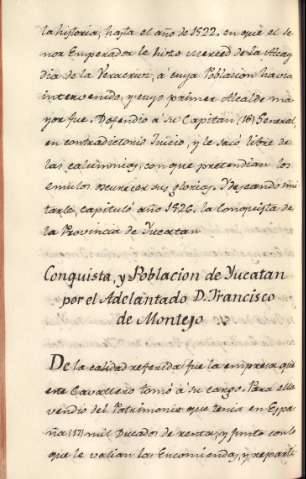 la historia, hasta el año de 1522. en que el se
ñor Emperador le hizo merced de la Alcay
dia de la Veracruz, a cuya Poblacion havia
intervenido, y cuyo primer Alcalde ma
yor fue. Defendio à su Capitan General
en contradictorio Juicio, y le sacó libre de
las calumnias, con que pretendian los
emulos oscurecer sus glorias. Y deseando imi
tarle, capituló año 1526. la Conquista de
la Provincia de Yucatan
Conquista, y Poblacion de Yucatan
por el Adelantado D. Francisco
de Montejo
De la calidad referida fue la empresa que
este Cavallero tomó à su cargo. Para ella
vendio del Patrimonio que tenia en Espa
ña mil Ducados de renta, y junto con lo
que le valian las Encomiendas, y reparti